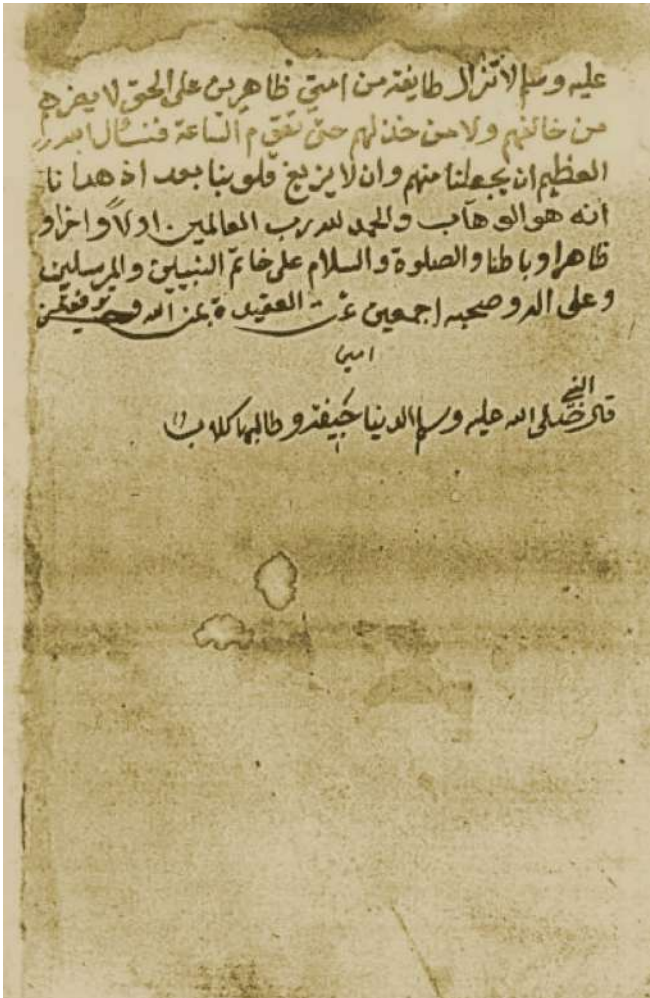 عليه وسلم لا تزال طايفة من امتي ظاهرين على الحق لا يضرهم
من خالفهم ولا من خذلهم حتى تقوم الساعة فنسال الله
العظيم ان يجعلنا منهم وان لا يزيغ قلوبنا بعد اذ هدانا
انه هو الوهاب والحمد لله رب العالمين اولاً واخرا و
ظاهرا وباطنا والصلوة والسلام على خاتم النبيين والمرسلين
وعلى اله وصحبه اجمعين تمت العقيدة بمن الله وحسن توفيقه
امين
قال النبي صلى الله عليه وسلم الدنيا جيفة وطالبها كلاب